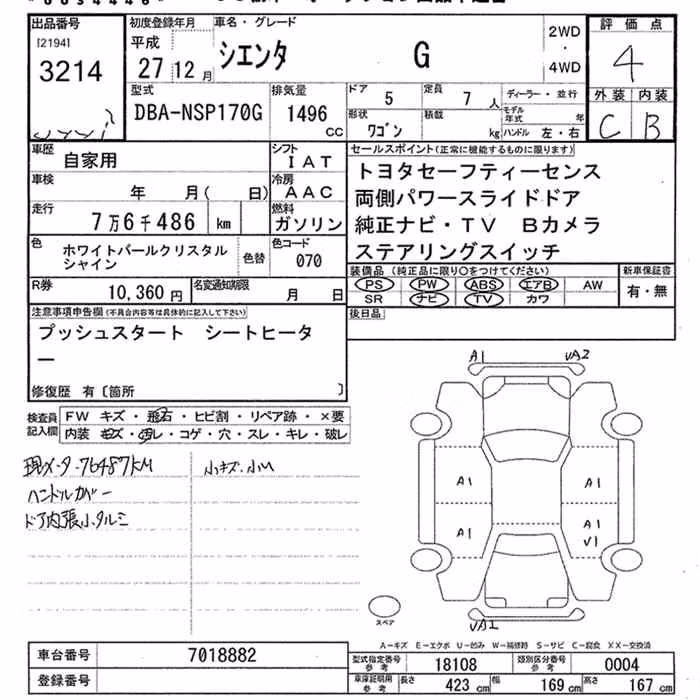 出品番号
[2194]
3214
初度登録年月
平成
27 12 月
車名・グレード
シエンタ G
2WD
・
4WD
評価点
4
外装 内装
C B
型式
DBA-NSP170G
排気量
1496
CC
ドア
5
定員
7 人
形状
ワゴン
積載
kg
ディーラー・並行
モデル年式 年
ハンドル 左・右
車歴
自家用
シフト
IAT
車検
年 月( 日)
冷房
AAC
走行
7万6千486 km
燃料
ガソリン
色
ホワイトパールクリスタル
シャイン
色替
色コード
070
R券
10,360 円
名変通知期限
月 日
セールスポイント(正常に機能するものに限ります)
トヨタセーフティーセンス
両側パワースライドドア
純正ナビ・TV Bカメラ
ステアリングスイッチ
装備品 (純正品に限り○をつけてください)
PS PW ABS エアB AW
SR ナビ TV カワ
新車保証書
有・無
後日品
注意事項申告欄(不具合内容等は具体的に記入して下さい)
プッシュスタート シートヒータ
ー
修復歴 有〔箇所 〕
検査員
記入欄
FW キズ・飛石・ヒビ割・リペア跡・×要
内装 キズ・汚レ・コゲ・穴・スレ・キレ・破レ
現メータ-76487KM
ハンドルカバー
ドア内張小タルミ
小キズ.小凹
A1
A1
A1
A1
A1
V1
スペア
A-キズ E-エクボ U-凹み W-補修跡 S-サビ C-腐食 XX-交換済
車台番号
7018882
登録番号
型式指定番号
参考
18108
類別区分番号
参考
0004
車庫証明用
参考
長さ
423 cm
幅
169 cm
高さ
167 cm